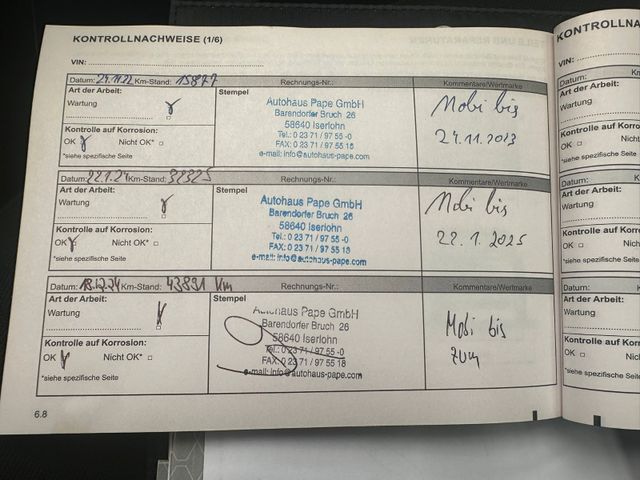 KONTROLLNACHWEISE (1/6)
VIN:
Datum: 24.11.22 Km-Stand: 15877 Rechnungs-Nr.: Kommentare/Wertmarke
Art der Arbeit: Stempel
Wartung
Autohaus Pape GmbH
Barendorfer Bruch 26
58640 Iserlohn
Tel.: 0 23 71 / 97 55 -0
FAX: 0 23 71 / 97 55 18
e-mail: info@autohaus-pape.com
Mobi bis
24.11.2023
Kontrolle auf Korrosion:
OK Nicht OK*
*siehe spezifische Seite
Datum: 22.1.24 Km-Stand: 32325 Rechnungs-Nr.: Kommentare/Wertmarke
Art der Arbeit: Stempel
Wartung
Autohaus Pape GmbH
Barendorfer Bruch 26
58640 Iserlohn
Tel.: 0 23 71 / 97 55 -0
FAX: 0 23 71 / 97 55 18
e-mail: info@autohaus-pape.com
Mobi bis
22.1.2025
Kontrolle auf Korrosion:
OK Nicht OK*
*siehe spezifische Seite
Datum: 18.12.24 Km-Stand: 43891 Km Rechnungs-Nr.: Kommentare/Wertmarke
Art der Arbeit: Stempel
Wartung
Autohaus Pape GmbH
Barendorfer Bruch 26
58640 Iserlohn
Tel.: 0 23 71 / 97 55 -0
FAX: 0 23 71 / 97 55 18
e-mail: info@autohaus-pape.com
Mobi bis
zum
Kontrolle auf Korrosion:
OK Nicht OK*
*siehe spezifische Seite
6.8
KONTROLLNA
VIN:
Datum:
Art der Arbeit:
Wartung
Kontrolle auf Korro
OK Nicht
*siehe spezifische Seit
Datum:
Art der Arbeit:
Wartung
Kontrolle auf Korro
OK Nicht
*siehe spezifische Seite
Art der Arbeit:
Wartung
Kontrolle auf Korros
OK Nicht O
*siehe spezifische Seite